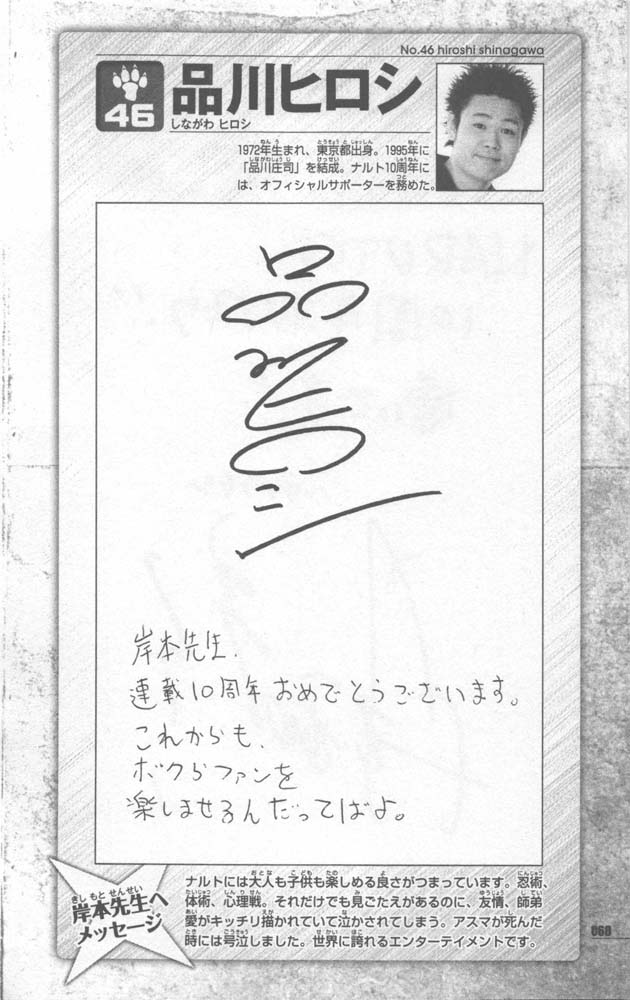 No.46 hiroshi shinagawa
46
品川ヒロシ
しながわ ヒロシ
1972年生まれ、東京都出身。1995年に
「品川庄司」を結成。ナルト10周年に
は、オフィシャルサポーターを務めた。
品川ヒロシ
岸本先生、
連載10周年おめでとうございます。
これからも、
ボクらファンを
楽しませるんだってばよ。
岸本先生へ
メッセージ
ナルトには大人も子供も楽しめる良さがつまっています。忍術、
体術、心理戦。それだけでも見ごたえがあるのに、友情、師弟
愛がキッチリ描かれていて泣かされてしまう。アスマが死んだ
時には号泣しました。世界に誇れるエンターテイメントです。
060